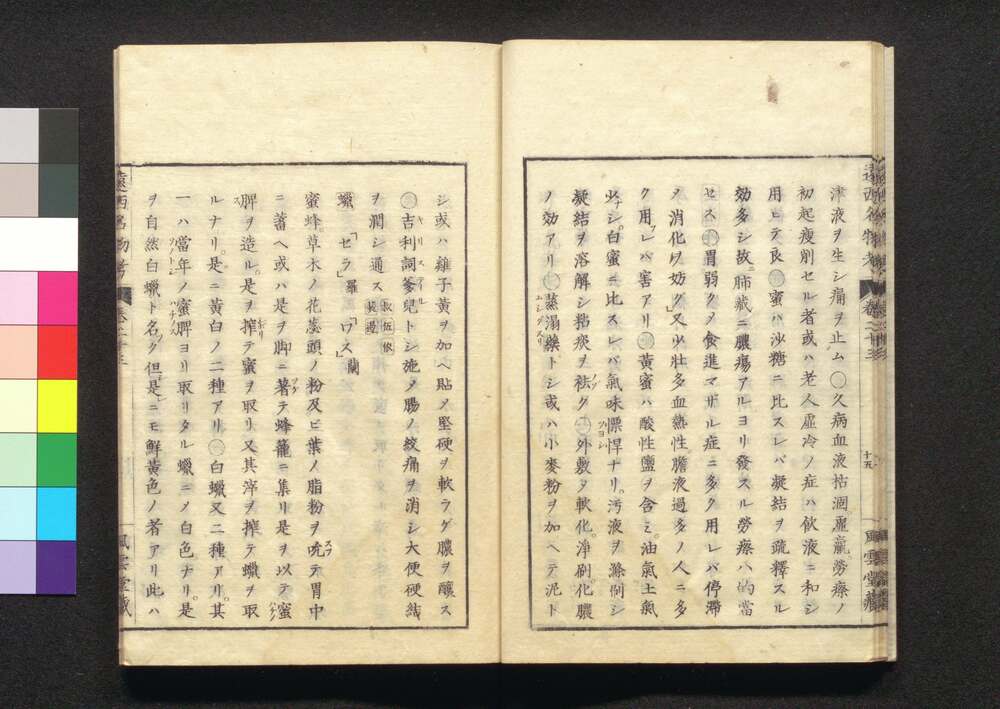 津液ヲ生シ痛ヲ止ム○久病血液枯涸羸瘦勞瘵ノ
初起瘦削セル者或ハ老人虛冷ノ症ハ飲液ニ和シ
用ヒテ良○蜜ハ沙糖ニ比スレバ凝結ヲ疏釋スル
効多シ故ニ肺藏ニ膿瘍アルヨリ發スル勞瘵ハ的當
セス○胃弱クメ食進マザル症ニ多ク用レバ停滯
メ消化ヲ妨グ又少壯多血熱性膽液過多ノ人ニ多
ク用レバ害アリ○黃蜜ハ酸性鹽ヲ含ミ油氣土氣
少ナシ白蜜ニ比スレバ氣味慓悍ナリ汚液ヲ滌刷シ
凝結ヲ溶解シ粘痰ヲ袪ク○外敷メ軟化淨刷化膿
ノ効アリ○蒸溻藥トシ或ハ小麥粉ヲ加ヘテ泥ト
シ或ハ雞子黃ヲ加ヘ貼メ堅硬ヲ軟ラゲ膿ヲ釀ス
○吉利詞爹兒トシ施メ腸ノ絞痛ヲ消シ大便硬結
ヲ潤シ通ス
蠟 「セラ」羅 「ワス」蘭
蜜蜂草木ノ花蕊頭ノ粉及ビ葉ノ脂粉ヲ吮テ胃中
ニ蓄ヘ或ハ是ヲ脚ニ著テ蜂籠ニ集リ是ヲ以テ蜜
脾ヲ造ル是ヲ搾テ蜜ヲ取リ又其滓ヲ搾テ蠟ヲ取
ルナリ是ニ黃白ノ二種アリ○白蠟又二種アリ其
一ハ當年ノ蜜脾ヨリ取リタル蠟ニメ白色ナリ是
ヲ自然白蠟ト名ク但是ニモ鮮黃色ノ者アリ此ハ